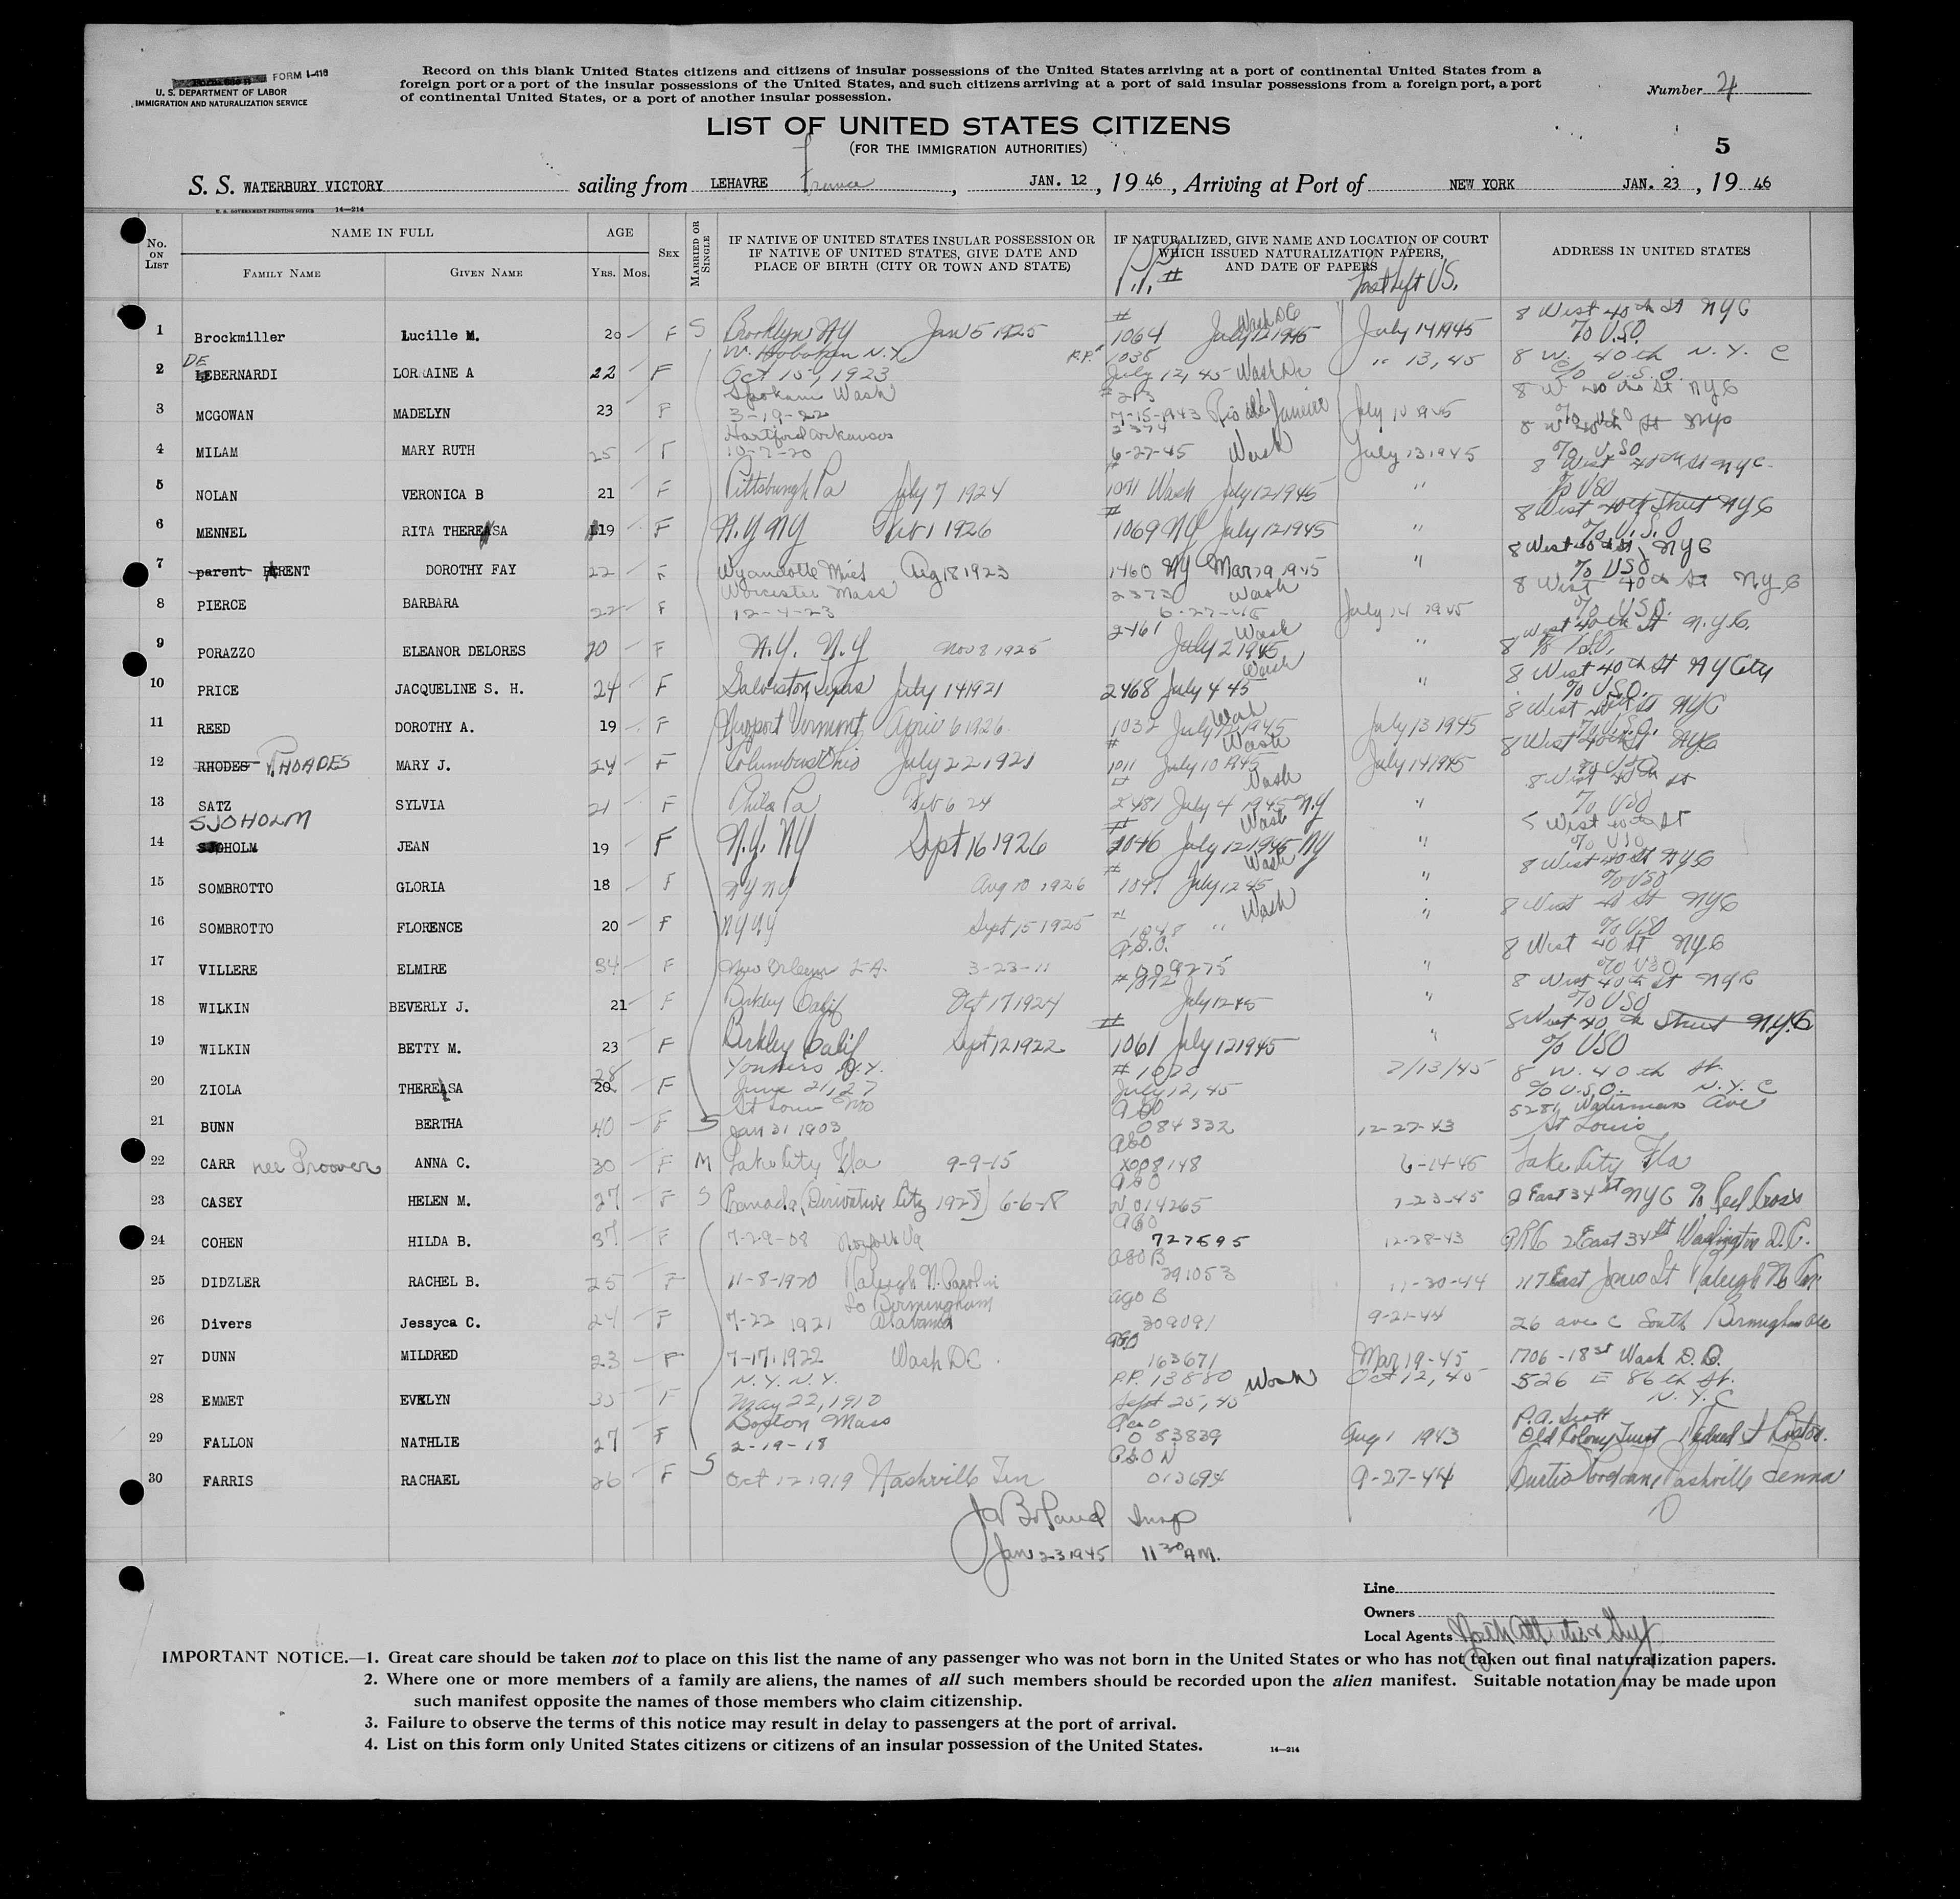 FORM I-416
U. S. DEPARTMENT OF LABOR
IMMIGRATION AND NATURALIZATION SERVICE
Record on this blank United States citizens and citizens of insular possessions of the United States arriving at a port of continental United States from a
foreign port or a port of the insular possessions of the United States, and such citizens arriving at a port of said insular possessions from a foreign port, a port
of continental United States, or a port of another insular possession.
Number 4
LIST OF UNITED STATES CITIZENS
(FOR THE IMMIGRATION AUTHORITIES)
5
S. S. WATERBURY VICTORY sailing from LEHAVRE France, JAN. 12, 19 46, Arriving at Port of NEW YORK JAN. 23, 19 46
U. S. GOVERNMENT PRINTING OFFICE 14—214
No. ON LIST
NAME IN FULL
FAMILY NAME
GIVEN NAME
AGE
YRS. MOS.
SEX
MARRIED OR SINGLE
IF NATIVE OF UNITED STATES INSULAR POSSESSION OR
IF NATIVE OF UNITED STATES, GIVE DATE AND
PLACE OF BIRTH (CITY OR TOWN AND STATE)
IF NATURALIZED, GIVE NAME AND LOCATION OF COURT
WHICH ISSUED NATURALIZATION PAPERS,
AND DATE OF PAPERS
P.P. # Last Left US.
ADDRESS IN UNITED STATES
1 Brockmiller Lucille M. 20 F S Brooklyn NY Jan 5 1925 # 1064 July 12 1945 Wash DC July 14 1945 8 West 40th St NYC % U.S.O.
2 DEBERNARDI LORRAINE A 22 F W. Hoboken N.Y. Oct 15, 1923 P.P.# 1038 July 12, 45 Wash Dc " 13, 45 8 W. 40th N.Y. C c/o U.S.O.
3 MCGOWAN MADELYN 23 F Spokane Wash 3-19-22 # 213 7-15-1943 Rio de Janeiro July 10 1945 8 W 40th St NYC % USO
4 MILAM MARY RUTH 25 F Hartford Arkansas 10-7-20 2374 6-27-45 Wash July 13 1945 8 W 40th St NYC % USO
5 NOLAN VERONICA B 21 F Pittsburgh Pa July 7 1924 # 1071 Wash July 12 1945 " 8 West 40th St NYC % USO
6 MENNEL RITA THERESA 19 F N.Y NY Feb 1 1926 # 1069 NY July 12 1945 " 8 West 40th Street NYC % U.S.O
7 parent PARENT DOROTHY FAY 22 F Wyandotte Mich Aug 18 1923 1460 NY Mar 29 1945 " 8 West 40th St NYC % USO
8 PIERCE BARBARA 22 F Worcester Mass 12-4-23 2373 Wash 6-27-45 July 14 1945 8 West 40th St NYC % USO.
9 PORAZZO ELEANOR DELORES 20 F N.Y. N.Y Nov 8 1925 2461 Wash July 2 1945 " 8 West 40th St N.Y.C. % USO.
10 PRICE JACQUELINE S. H. 24 F Galveston Texas July 14 1921 2468 July 4 45 Wash " 8 West 40th St NY City % USO.
11 REED DOROTHY A. 19 F Newport Vermont April 6 1926 1032 July 12 1945 Wash July 13 1945 8 West 40th St NYC % U.S.O.
12 RHODES RHOADES MARY J. 24 F Columbus Ohio July 22 1921 # 1011 July 10 1945 Wash July 14 1945 8 West 40th St NYC % USO
13 SATZ SYLVIA 21 F Phila Pa Feb 6 24 # 2481 July 4 1945 N.Y Wash " 8 West 40th St % USO
14 SJOHOLM SJOHOLM JEAN 19 F N.Y. NY Sept 16 1926 # 1046 July 12 1945 NY Wash " 8 West 40th St % USO
15 SOMBROTTO GLORIA 18 F NY NY Aug 10 1926 # 1047 July 12 45 Wash " 8 West 40 St NYC % USO
16 SOMBROTTO FLORENCE 20 F NY NY Sept 15 1925 # 1048 " Wash " 8 West 40 St NYC % USO
17 VILLERE ELMIRE 34 F New Orleans LA. 3-23-11 A.G.O. 009275 " 8 West 40 St NYC % USO
18 WILKIN BEVERLY J. 21 F Berkley Calif Oct 17 1924 July 12 45 " 8 West 40th St NYC % USO
19 WILKIN BETTY M. 23 F Berkley Calif Sept 12 1922 # 1061 July 12 1945 " 8 West 40th Street N.Y.C % USO
20 ZIOLA THERESA 20 28 F Yonkers N.Y. June 21, 27 # 1020 July 12, 45 7/13/45 8 W. 40th St. % U.S.O. N.Y. C
21 BUNN BERTHA 40 F S St Louis Mo Jan 31 1903 AGO 084332 12-27-43 5284 Waterman Ave St Louis
22 CARR nee ANNA C. 30 F M Lake City Fla 9-9-15 AGO X008148 6-14-45 Lake City Fla
23 CASEY HELEN M. 27 F S Canada (Derivative Citz 1928) 6-6-18 AGO N 014265 7-23-45 2 East 34 St NYC % Red Cross
24 COHEN HILDA B. 37 F 7-29-08 Norfolk Va AGO 727695 12-28-43 ARC 2 East 34 St Washington D.C.
25 DIDZLER RACHEL B. 25 F 11-8-1920 Raleigh N. Carolin AGO B 291053 11-30-44 117 East Jones St Raleigh No Car
26 Divers Jessyca C. 24 F 7-22 1921 So Birmingham Alabama AGO B 309091 9-21-44 26 ave C South Birmingham Ala
27 DUNN MILDRED 23 F 7-17-1922 Wash DC. AGO 163671 Mar 19-45 1706-18 St Wash D. C.
28 EMMET EVELYN 35 F N.Y. N.Y. May 22, 1910 P.P. 13880 Wash Sept 25, 45 Oct 12, 45 526 E 86th St. N.Y.C
29 FALLON NATHLIE 27 F Boston Mass 2-19-18 AGO 083839 Aug 1 1943 P.A. Scott Old Colony Trust Federal St Boston.
30 FARRIS RACHAEL 26 F S Oct 12 1919 Nashville Ten AGO N 013694 9-27-44 Nashville Tenna
Boland Insp
Jan 23 1945 11 30 AM.
Line
Owners
Local Agents
IMPORTANT NOTICE.—1. Great care should be taken not to place on this list the name of any passenger who was not born in the United States or who has not taken out final naturalization papers.
2. Where one or more members of a family are aliens, the names of all such members should be recorded upon the alien manifest. Suitable notation may be made upon
such manifest opposite the names of those members who claim citizenship.
3. Failure to observe the terms of this notice may result in delay to passengers at the port of arrival.
4. List on this form only United States citizens or citizens of an insular possession of the United States.
14—214